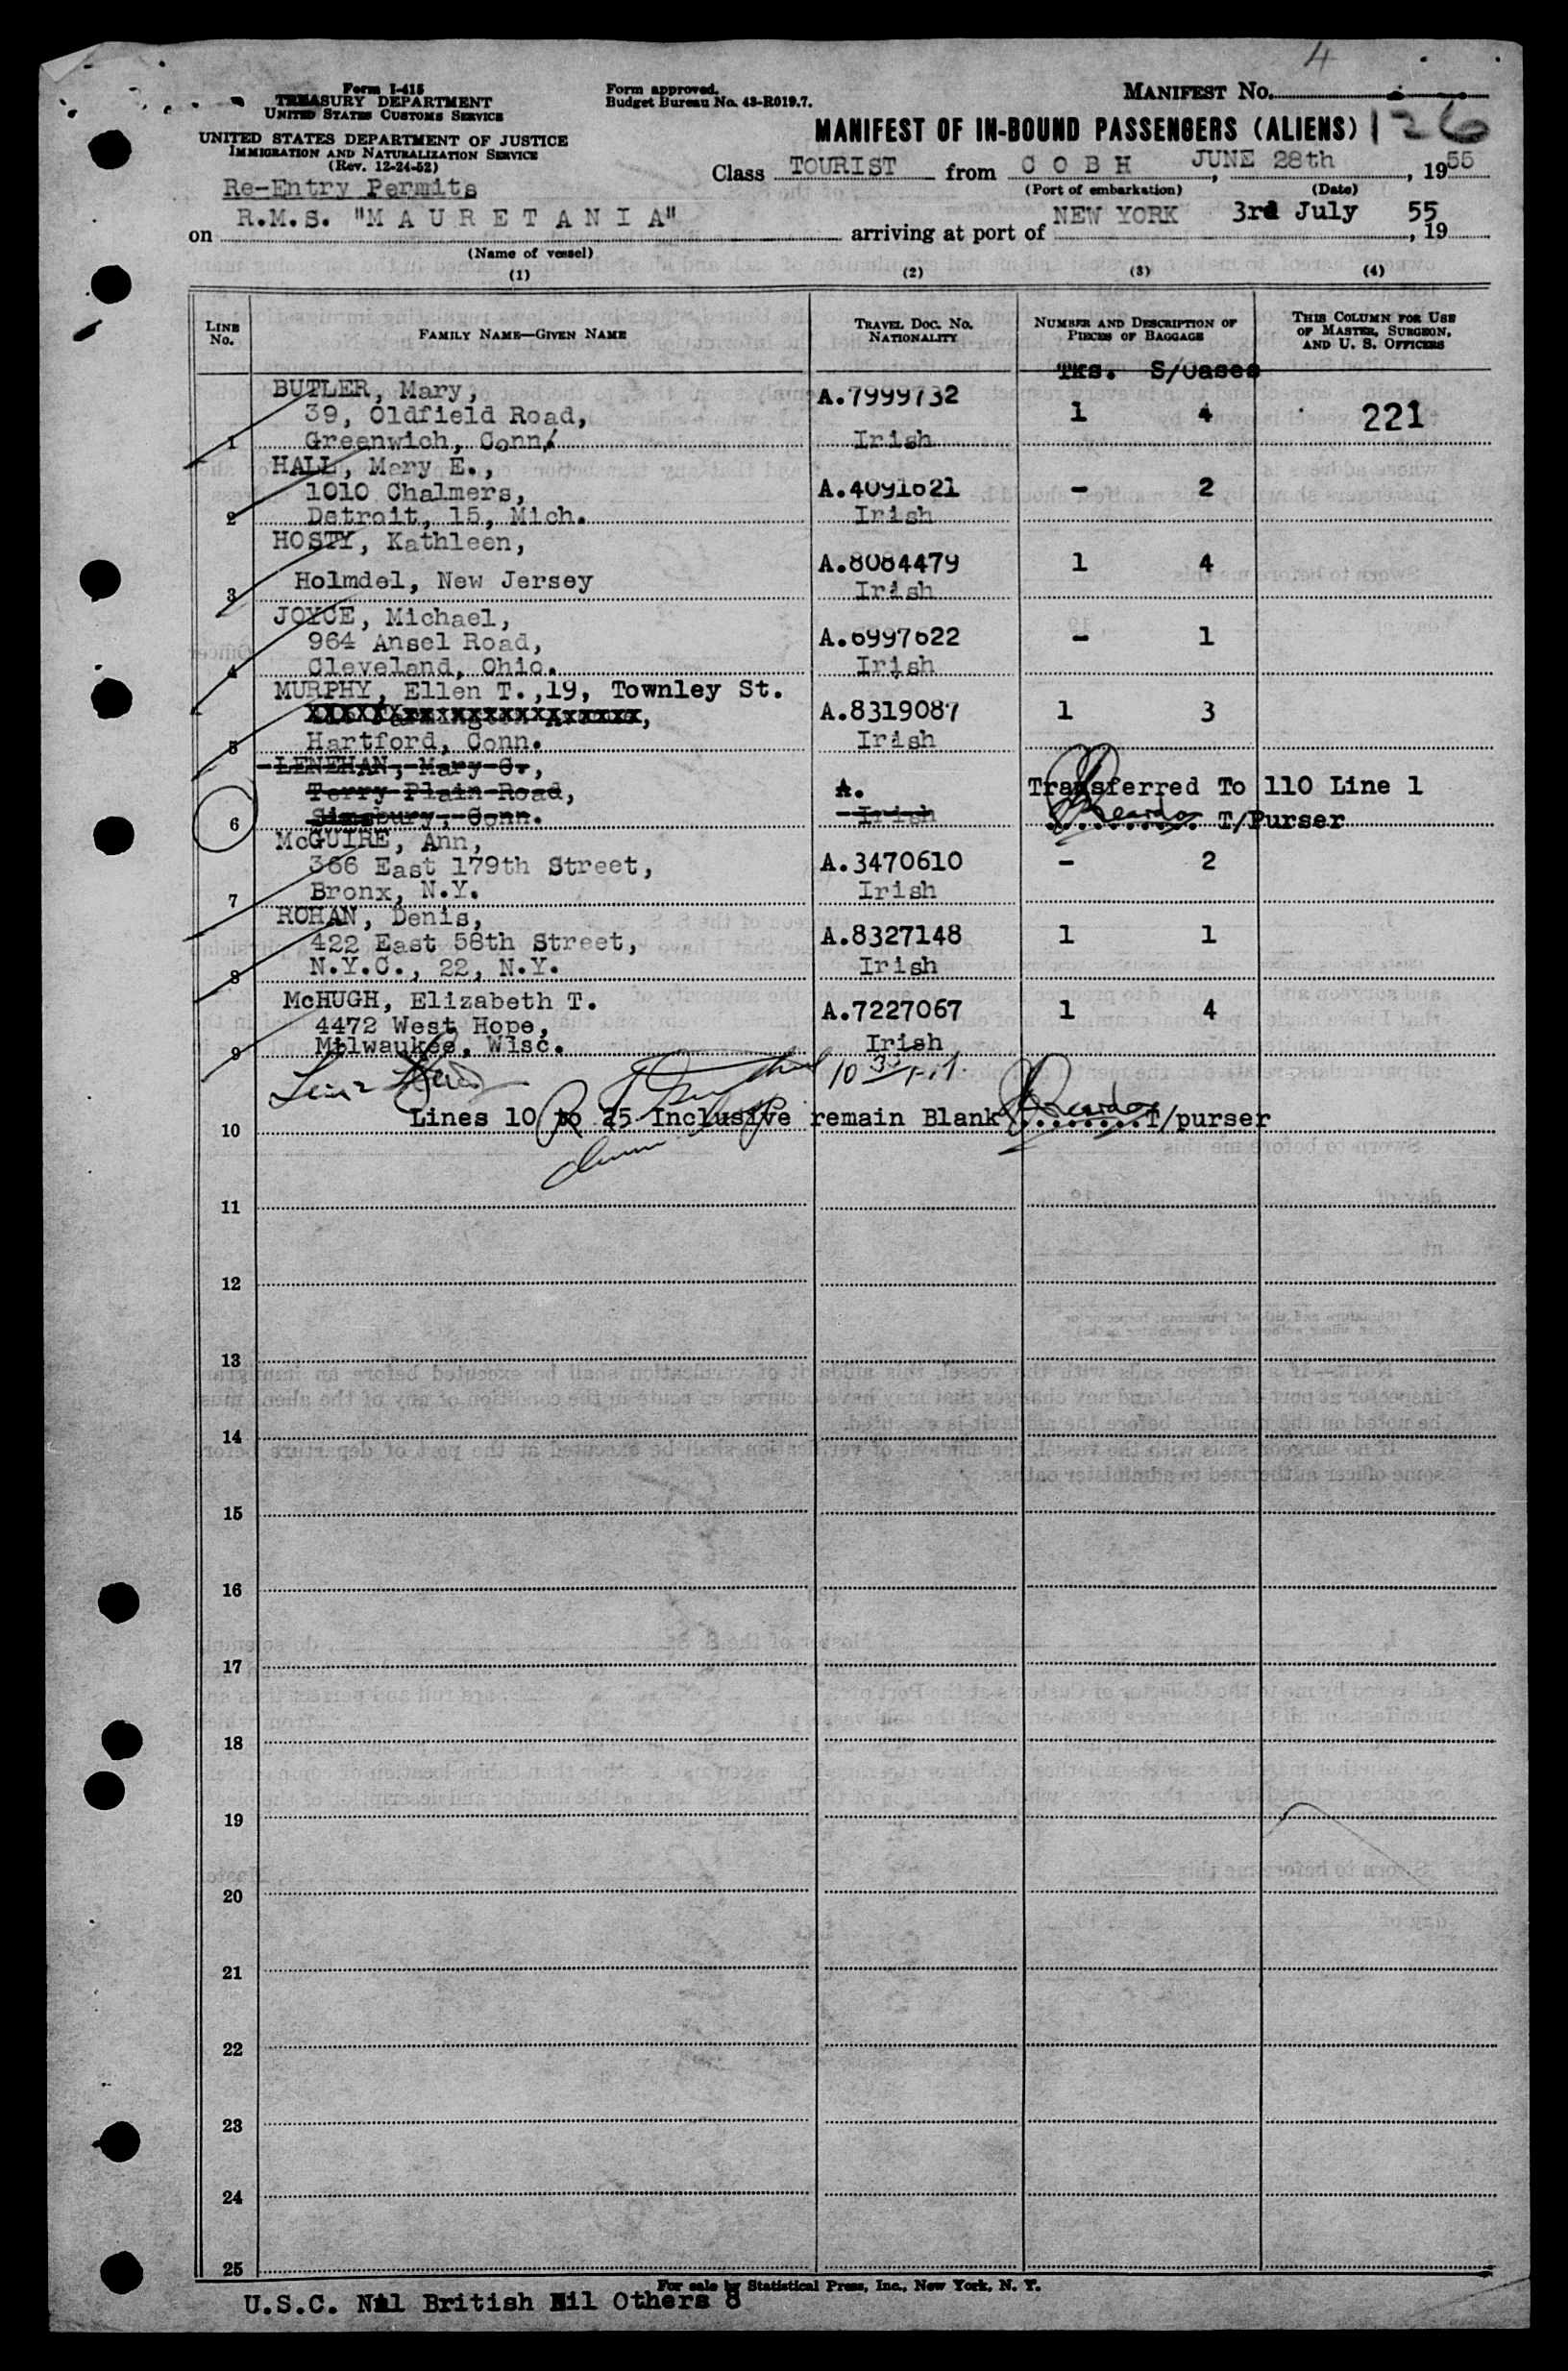 4
Form I-415
TREASURY DEPARTMENT
UNITED STATES CUSTOMS SERVICE
UNITED STATES DEPARTMENT OF JUSTICE
IMMIGRATION AND NATURALIZATION SERVICE
(Rev. 12-24-52)
Form approved.
Budget Bureau No. 43-R019.7.
MANIFEST No.
MANIFEST OF IN-BOUND PASSENGERS (ALIENS) 126
Re-Entry Permits
Class TOURIST from C O B H, JUNE 28th, 1955
(Port of embarkation) (Date)
on R.M.S. "M A U R E T A N I A" arriving at port of NEW YORK 3rd July, 1955
(Name of vessel)
(1) (2) (3) (4)
LINE No. FAMILY NAME—GIVEN NAME TRAVEL DOC. No. NATIONALITY NUMBER AND DESCRIPTION OF PIECES OF BAGGAGE THIS COLUMN FOR USE OF MASTER, SURGEON, AND U. S. OFFICERS
Tks. S/Cases
BUTLER, Mary, A.7999732
39, Oldfield Road, 1 4 221
1 Greenwich, Conn. Irish
HALL, Mary E.,
1010 Chalmers, A.4091621 - 2
2 Detroit, 15, Mich. Irish
HOSTY, Kathleen,
A.8084479 1 4
3 Holmdel, New Jersey Irish
JOYCE, Michael,
964 Ansel Road, A.6997622 - 1
4 Cleveland, Ohio. Irish
MURPHY, Ellen T.,19, Townley St.
A.8319087 1 3
5 Hartford, Conn. Irish
LENEHAN, Mary C.,
Terry Plain Road, A. Transferred To 110 Line 1
6 Simsbury, Conn. Irish Reardo T/Purser
McGUIRE, Ann,
366 East 179th Street, A.3470610 - 2
7 Bronx, N.Y. Irish
ROHAN, Denis,
422 East 58th Street, A.8327148 1 1
8 N.Y.C., 22, N.Y. Irish
McHUGH, Elizabeth T.
4472 West Hope, A.7227067 1 4
9 Milwaukee, Wisc. Irish
10 Lines 10 to 25 Inclusive remain Blank ........T/purser
11
12
13
14
15
16
17
18
19
20
21
22
23
24
25
For sale by Statistical Press, Inc., New York, N. Y.
U.S.C. Nil British Nil Others 8